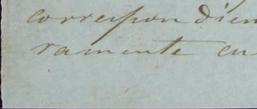 correspondien
ramente en